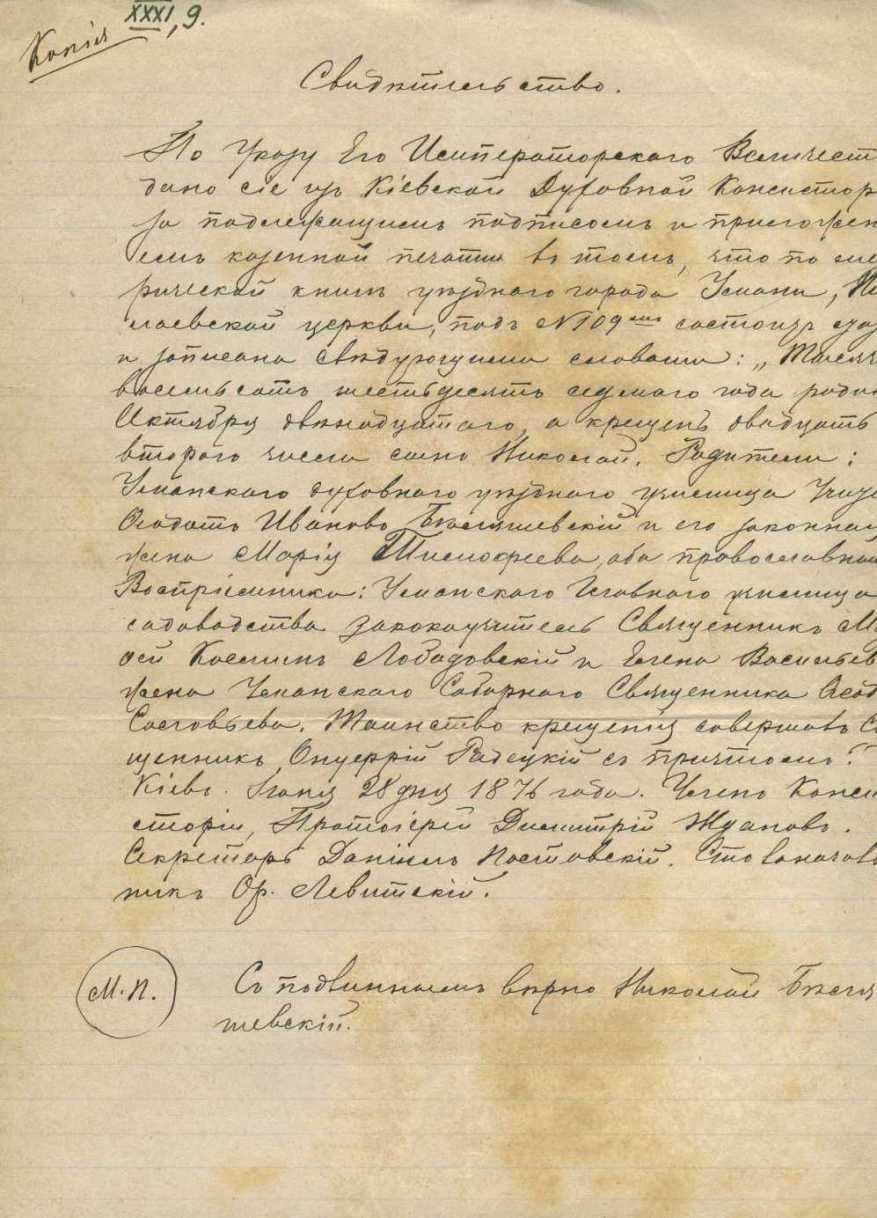 XXXI, 9.
Копія
Свидѣтельство.
По Указу Его Императорскаго Величест
дано сіе изъ Кіевской Духовной Консистор
за надлежащимъ подписомъ и приложен
емъ казенной печати въ томъ, что по ме
рической книгѣ уѣзднаго города Умани, Ни
лаевской церкви, подъ №109ᵐъ состоитъ
и записана слѣдующими словами: „Тысяч
восемьсотъ шестьдесятъ седьмаго года роди
Октября двѣнадцатаго, а крещенъ двадцать
втораго числа сынъ Николай. Родители:
Уманскаго духовнаго уѣзднаго училища
Ѳеодотъ Ивановъ Бѣляшевскій и его законная
жена Марія Тимофеева, оба православны
Воспріемники: Уманскаго Главнаго училища
садоводства законоучитель Священникъ М
сей Космичъ Лободовскій и Елена Васильев
жена Уманскаго Соборнаго Священника Ѳеод
Соловьева. Таинство крещенія совершалъ С
щенникъ Онуфрій Радецкій съ причтомъ".
Кіевъ. Іюня 28 дня 1876 года. Членъ Конси
сторіи, Протоіерей Димитрій Ждановъ.
Секретарь Даніилъ Постовскій. Столоначаль
никъ Ор. Левитскій.
М.П.
Съ подлиннымъ вѣрно Николай Бѣля
шевскій.